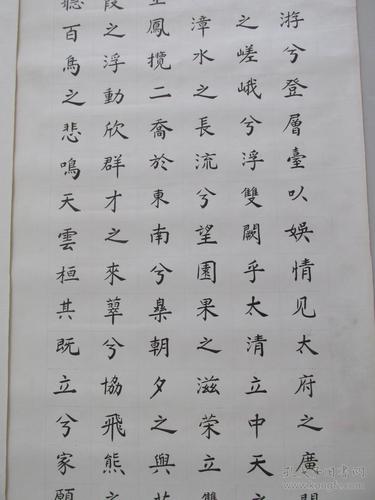 游兮登層臺以娛情见太府之廣開
之嵯峨兮浮雙闕乎太清立中天
漳水之長流兮望園果之滋荣立雙
鳳攬二喬於東南兮樂朝夕之與
段之浮動欣群才之來萃兮協飛熊之
聽百鳥之悲鳴天雲桓其既立兮家願